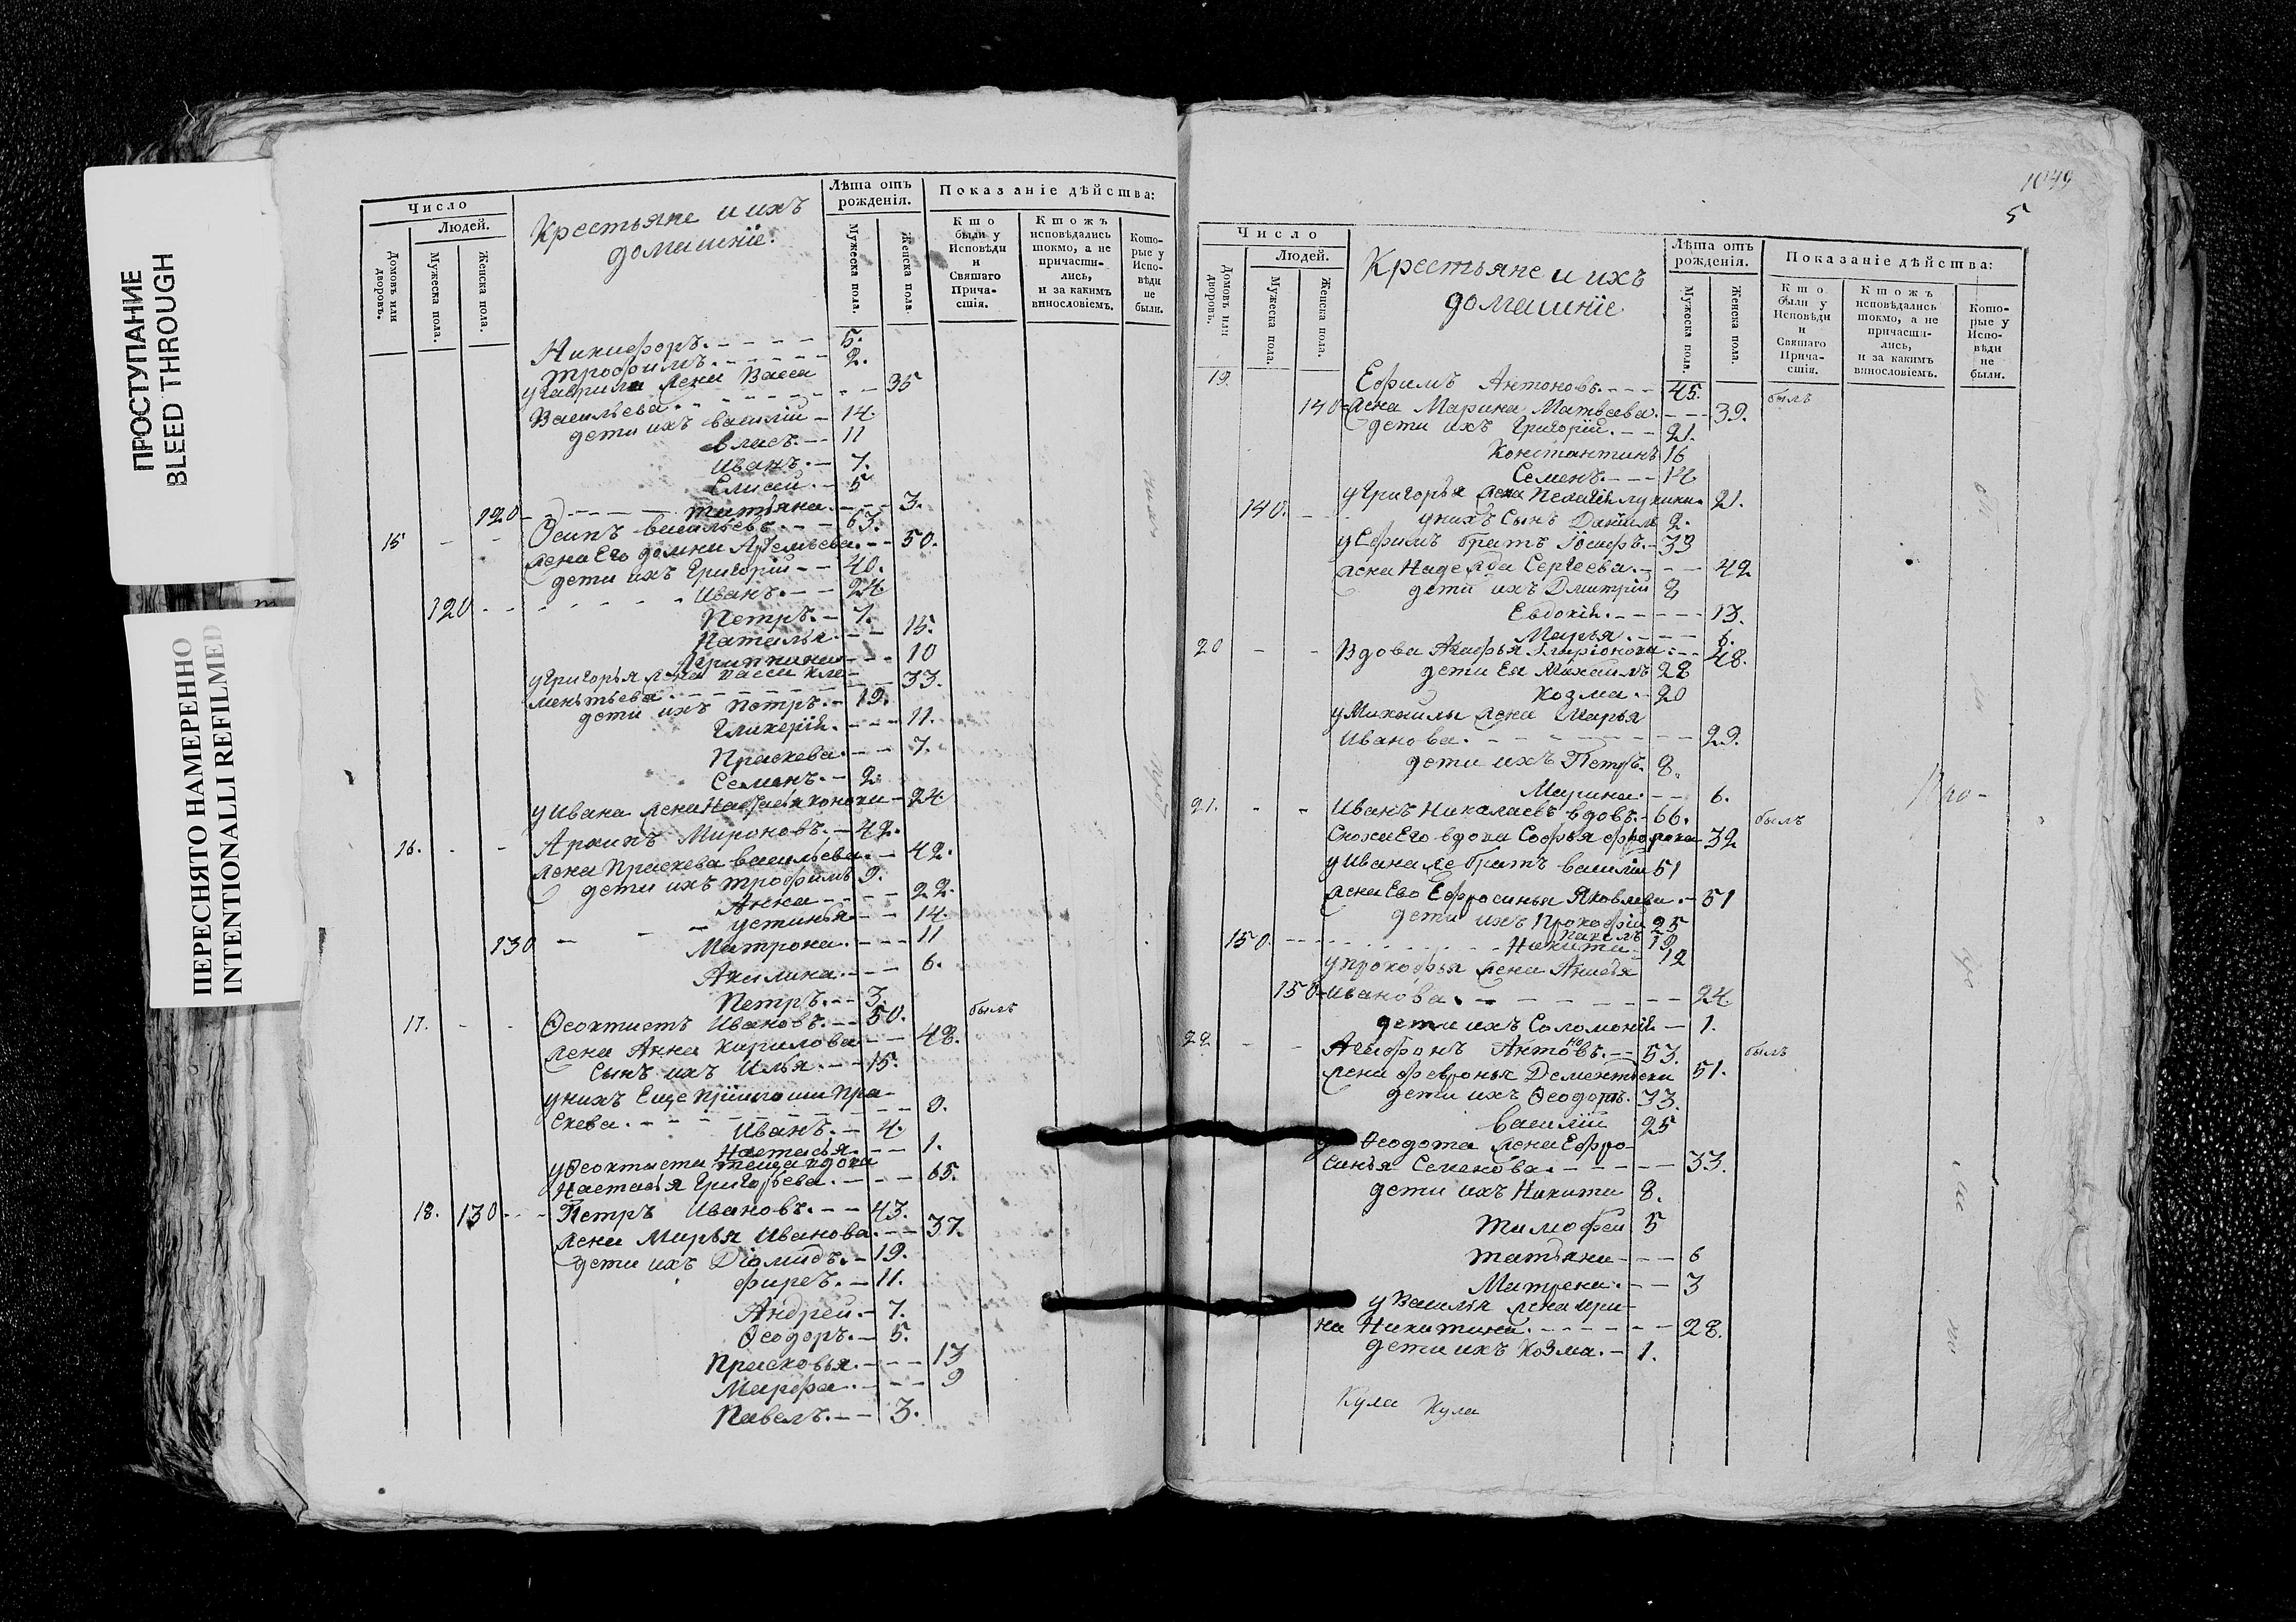 ПРОСТУПАНИЕ
BLEED THROUGH
ПЕРЕСНЯТО НАМЕРЕННО
INTENTIONALLI REFILMED
Число
Людей.
Домовъ или дворовъ.
Мужеска пола.
Женска пола.
Крестьяне и ихъ
домашніе.
Лѣта отъ
рожденія.
Мужеска пола.
Женска пола.
Показаніе дѣйства:
Кто
были у
Исповѣди
и
Святаго
Прича-
стія.
Ктожъ
исповѣдались
токмо, а не
причасти-
лись,
и за какимъ
винословіемъ.
Кото-
рые у
Испо-
вѣди
не
были.
Никифоръ. 5.
Трофимъ. 2.
у Гаврила жена Васса
Васильева. 35
дети ихъ Василій 14.
Власъ. 11
Иванъ. 7.
Елисей 5
120 Татьяна. 3.
15 Осипъ Васильевъ. 63.
жена Его Домна Артемьева. 50.
дети ихъ Григорій 40.
120 Иванъ. 24
Петръ. 7.
Наталья 15.
Агрипина 10
у Григорья жена Васса Кле-
ментьева 33.
дети ихъ Петръ. 19.
Гликерія. 11.
Праскева. 7.
Семенъ. 2.
у Ивана жена 24
16. Архипъ Мироновъ. 42.
жена Праскева Васильева. 42.
дети ихъ Трофимъ 9.
Анна 22.
Устинья 14.
130 Матрона. 11
Акилина. 6.
Петръ. 3.
17. Ѳеоктистъ Ивановъ. 50. былъ
жена Анна Кирилова 48.
сынъ ихъ Илья. 15.
у нихъ Еще Пра-
скева. 9.
Иванъ. 4.
Настасья. 1.
у Ѳеоктиста теща вдова
Настасья Григорьева. 65.
18. 130 Петръ Ивановъ. 43.
жена Марья Иванова. 37.
дети ихъ Діомидъ. 19.
Фирсъ. 11.
Андрей. 7.
Ѳеодоръ. 5.
Прасковья. 13
Марфа. 9
Павелъ. 3.
1049
5
Число
Людей.
Домовъ или дворовъ.
Мужеска пола.
Женска пола.
Крестьяне и ихъ
домашніе
Лѣта отъ
рожденія.
Мужеска пола.
Женска пола.
Показаніе дѣйства:
Кто
были у
Исповѣди
и
Святаго
Прича-
стія.
Ктожъ
исповѣдались
токмо, а не
причасти-
лись,
и за какимъ
винословіемъ.
Кото-
рые у
Испо-
вѣди
не
были.
19. Ефимъ Антоновъ. 45. былъ
140 жена Марина Матвѣева. 39.
дети ихъ Григорій. 21.
Константинъ 16
Семенъ. 14
у Григорья жена Пелагія Лукина. 21.
140. у нихъ сынъ Даніилъ 2.
у Ефима братъ Іосифъ. 33
жена Надежда Сергеева. 42
дети ихъ Дмитрій 8
Евдокія. 13.
Марья. 6.
20 Вдова Агафья 48.
дети Ея Михаилъ 28
Козма. 20
у Михаилы жена Марья
Иванова. 29.
дети ихъ Петръ. 8.
Марина. 6.
21. Иванъ Никалаевъ вдовъ. 66. былъ
сноха Его вдова Софья Фролова 32
у Ивана же братъ Василій 51
жена Ево Ефросинья Яковлева. 51
дети ихъ Прокофій 25
Павелъ 19
150. Никита 12
у Прокофья жена Анисья
150 Иванова. 24.
дети ихъ Соломонія 1.
22 Агафонъ Антоновъ. 53. былъ
жена Февронья Дементьева 51.
дети ихъ Ѳеодотъ. 33.
Василій 25
у Ѳеодота жена Ефро-
синья Семенова. 33.
дети ихъ Никита 8.
Тимофей 5
Татьяна 6
Матрена. 3
у Василья жена Ири-
на Никитина. 28.
дети ихъ Козма. 1.
Кула Кула